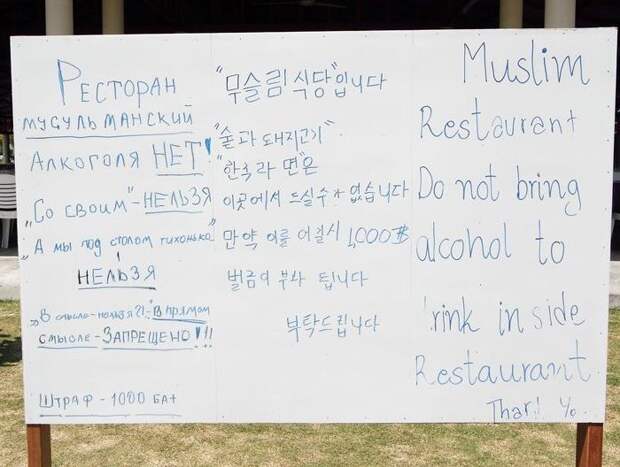 Ресторан
мусульманский
Алкоголя НЕТ!
"Со своим" - НЕЛЬЗЯ
"А мы под столом тихонько"
НЕЛЬЗЯ
"В смысле - нельзя?!" - В прямом
смысле - ЗАПРЕЩЕНО!!!
Штраф - 1000 бат
"무슬림 식당"입니다
"술과 돼지고기"
"한국라면"은
이곳에서 드실수가 없습니다
만약 이를 어길시 1,000฿
벌금이 부과 됩니다
부탁드립니다
Muslim
Restaurant
Do not bring
alcohol to
rink in side
Restaurant